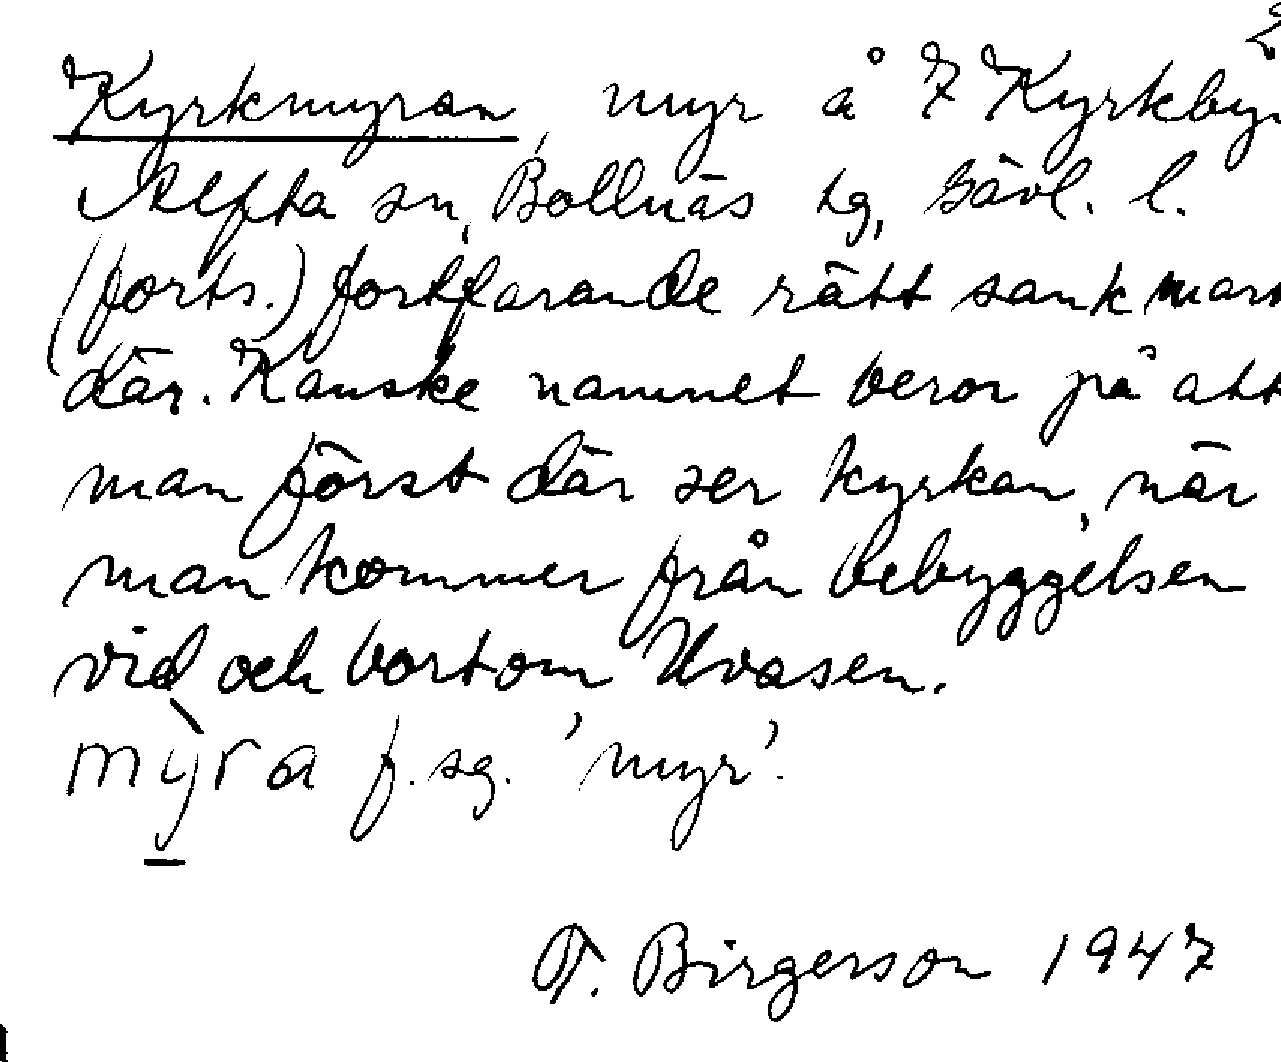 2
Kyrkmyran, myr å 7 Kyrkbyn
Alfta sn, Bollnäs tg, Gävl. l.
(forts.) fortfarande rätt sank mark
där. Kanske namnet beror på att
man först där ser kyrkan, när
man kommer från bebyggelsen
vid och bortom Uvåsen.
mỳra f. sg. 'myr'.
T. Birgerson 1947